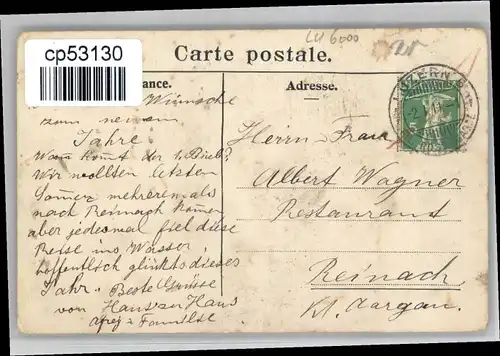 cp53130
LU 6000
Carte postale.
ance.
Adresse.
LUZERN
Wünsche
zum neuen
Jahre.
Wann komt der l. Bueb?
Wir wollten letzten
Somer mehreremals
nach Reinach komen
aber jedesmal fiel diese
Reise ins Wasser,
hoffentlich glückts dieses
Jahr. Beste Grüsse
von Haus zu Haus
Familie
Herrn & Frau
Albert Wagner
Restaurant
Reinach
Kt. Aargau.